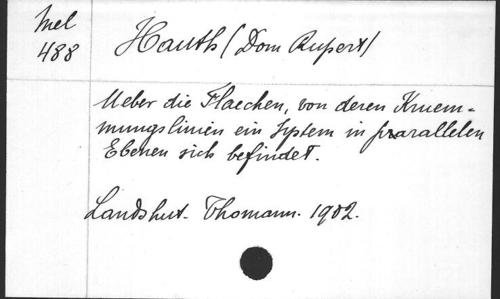 Mel
488
Hauth (Dom Rupert)
Ueber die Flaechen, von deren Kruem-
mungslinien ein System in parallelen
Ebenen sich befindet.
Landshut. Thomann. 1902.